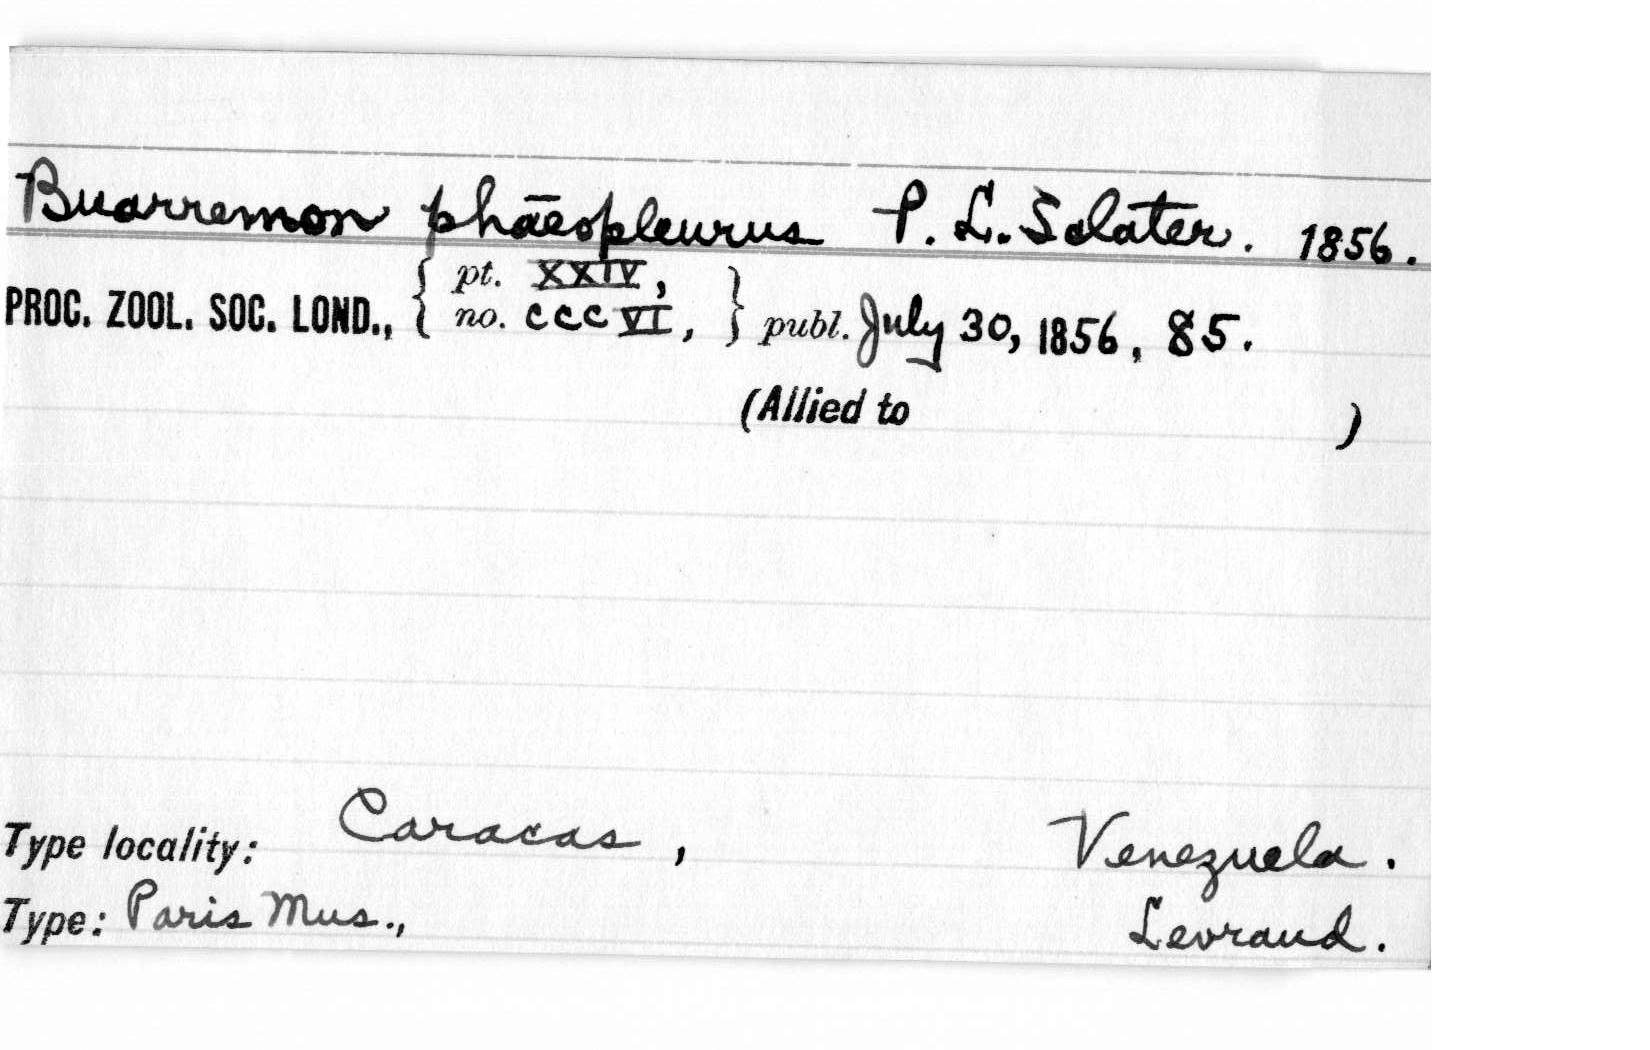 Buarremon phaeopleurus P. L. Sclater. 1856.
PROC. ZOOL. SOC. LOND., { pt. XXIV, no. CCCVI, } publ. July 30, 1856, 85.
(Allied to )
Type locality: Caracas, Venezuela.
Type: Paris Mus., Levraud.